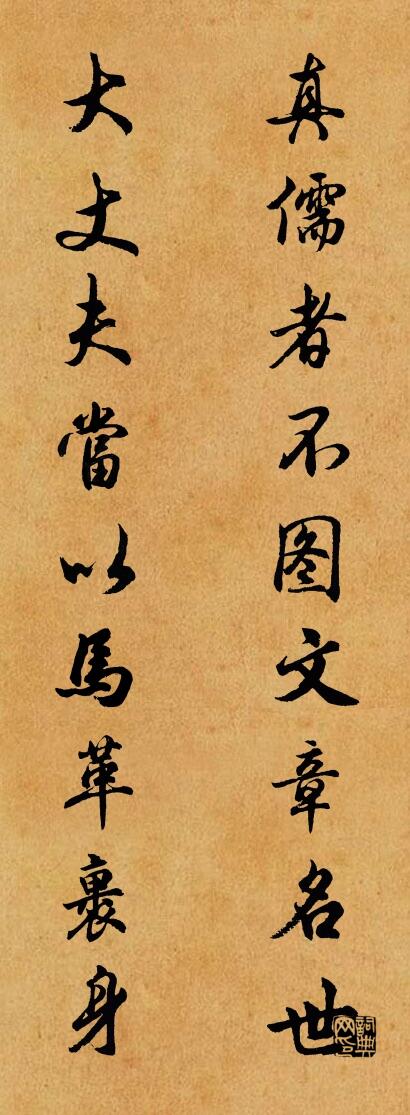 真儒者不图文章名世
大丈夫當以馬革裹身
詞典网